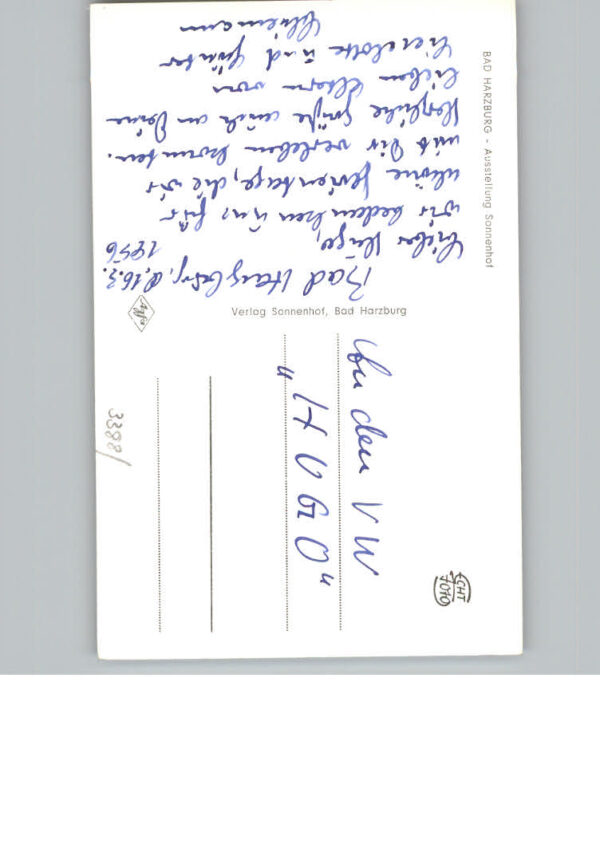 BAD HARZBURG - Ausstellung Sonnenhof
Bad Harzburg, d. 16.3.
1956
Lieber Hugo,
wir bedanken uns für
schöne Ferientage, die wir
mit Dir verleben konnten.
Herzliche Grüße auch an Deine
lieben Eltern von
Lieselotte und Günter
Verlag Sonnenhof, Bad Harzburg
Agfa
An den VW
"HUGO"
ECHT
FOTO
3398/